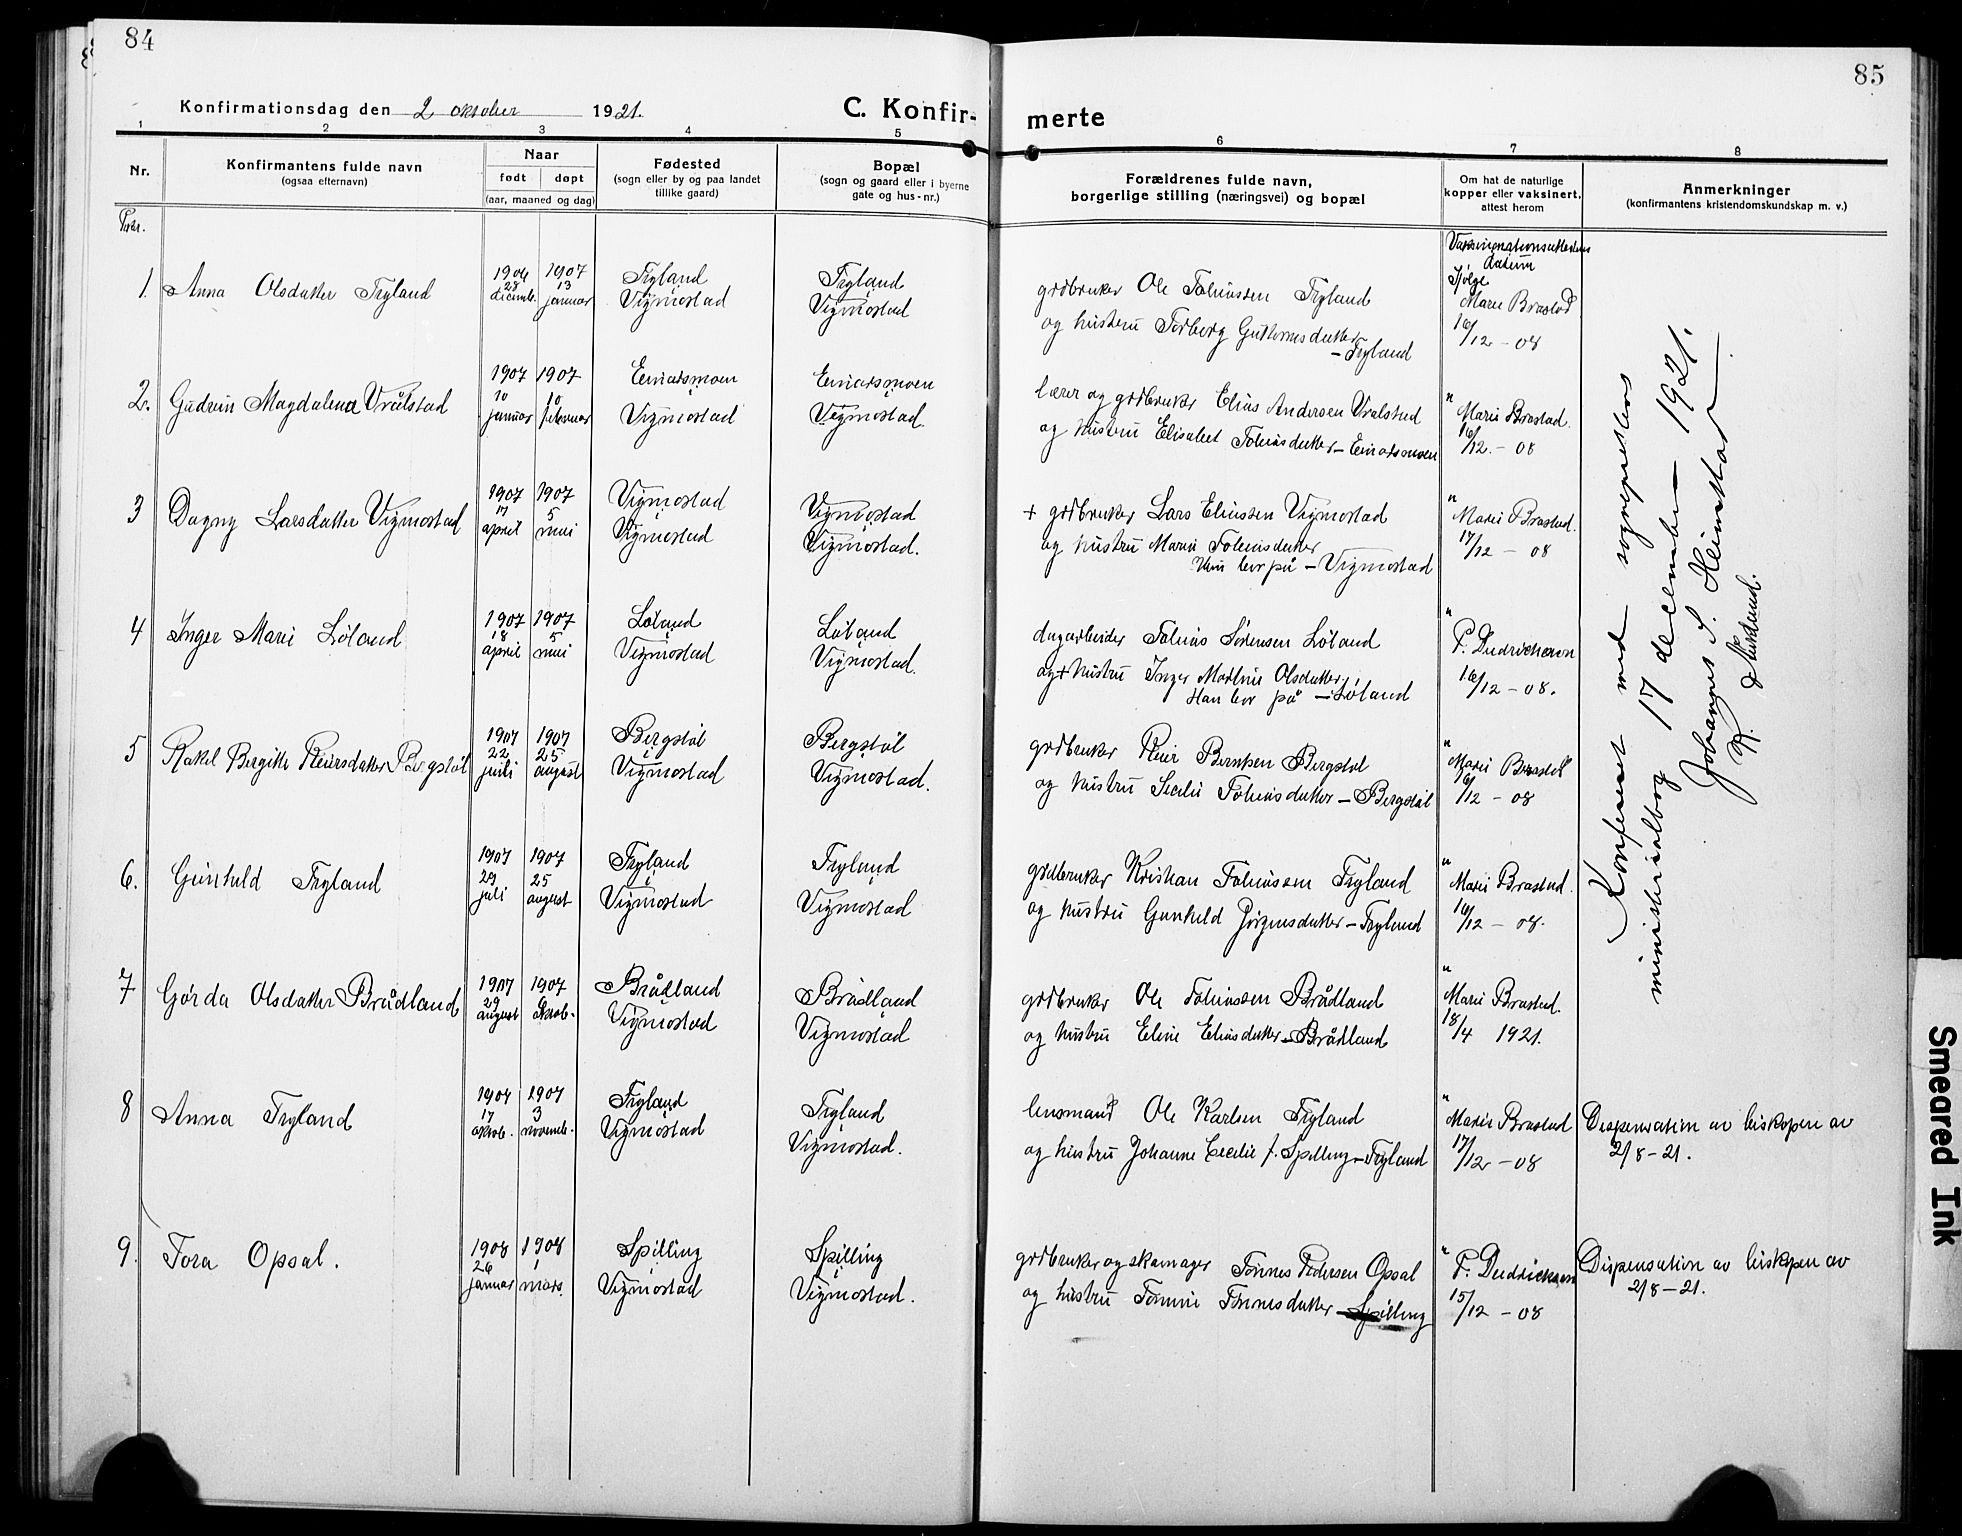 84
Konfirmationsdag den 2 oktober 1921.
C. Konfir-
1 2 3 4 5
Nr.
Konfirmantens fulde navn
(ogsaa efternavn)
Naar
født døpt
(aar, maaned og dag)
Fødested
(sogn eller by og paa landet
tillike gaard)
Bopæl
(sogn og gaard eller i byerne
gate og hus-nr.)
1. Anna Olsdatter Tryland
1906 28 decemb.
1907 13 januar
Tryland
Vigmostad
Tryland
Vigmostad
2. Gudrun Magdalena Vrålstad
1907 10 januar
1907 10 februar
Einarsmoen
Vigmostad
Einarsmoen
Vigmostad.
3 Dagny Larsdatter Vigmostad
1907 17 april
1907 5 mai
Vigmostad
Vigmostad
Vigmostad
Vigmostad.
4 Inger Marie Løland
1907 18 april
1907 5 mai
Løland
Vigmostad
Løland
Vigmostad.
5 Rakel Bergitte Reiersdatter Bergstøl
1907 22 juli
1907 25 august
Bergstøl
Vigmostad
Bergstøl
Vigmostad.
6. Gunhild Tryland
1907 29 juli
1907 25 august
Tryland
Vigmostad
Tryland
Vigmostad
7 Gerda Olsdatter Brådland
1907 29 august
1907 6 oktob.
Brådland
Vigmostad
Brådland
Vigmostad
8 Anna Tryland
1907 17 oktob.
1907 3 novemb.
Tryland
Vigmostad
Tryland
Vigmostad.
9. Tora Opsal.
1908 26 januar
1908 1 mars
Spilling
Vigmostad
Spilling
Vigmostad.
85
merte
6 7 8
Forældrenes fulde navn,
borgerlige stilling (næringsvei) og bopæl
Om hat de naturlige
kopper eller vaksinert,
attest herom
Anmerkninger
(konfirmantens kristendomskundskap m. v.)
Vaksinationsattestens
datum
gårdbruker Ole Tobiassen Tryland
og hustru Torborg Guttormsdatter
– Tryland
Marie Brastad
16/12 – 08
lærer og gårdbruker Elias Andersen Vralstad
og hustru Elisabet Tobiasdatter – Einarsmoen
" Marie Brastad.
16/12. – 08
+ gårdbruker Lars Eliassen Vigmostad
og hustru Marie Tobiasdatter
Hun bor på – Vigmostad
" Marie Brastad.
17/12 – 08
dagarbeider Tobias Sørensen Løland
og + hustru Inger Martine Olsdatter
Han bor på – Løland
" P. Diedrichsen
16/12 – 08.
gårdbruker Reier Berntsen Bergstøl
og hustru Secilie Tobiasdatter – Bergstøl
" Marie Brastad
16/12 – 08
gårdbruker Kristian Tobiassen Tryland
og hustru Gunhild Jörgensdatter – Tryland
" Marie Brastad.
16/12 – 08.
gårdbruker Ole Tobiassen Brådland
og hustru Eline Eliasdatter – Brådland
" Marie Brastad.
18/4 1921.
lensmand Ole Karlsen Tryland
og hustru Johanne Cecilie f. Spilling – Tryland
" Marie Brastad
17/12 – 08
Dispensation av biskopen av
2/8 – 21.
gårdbruker og skomager Tønnes Pedersen Opsal
og hustru Tomine Tønnesdatter – Spilling
" P. Diedrichsen
15/12 – 08
Dispensation av biskopen av
2/8 – 21.
Konferert med sogneprestens
ministerialbog 17 december 1921.
Johannes S. Heimstad
Smeared Ink